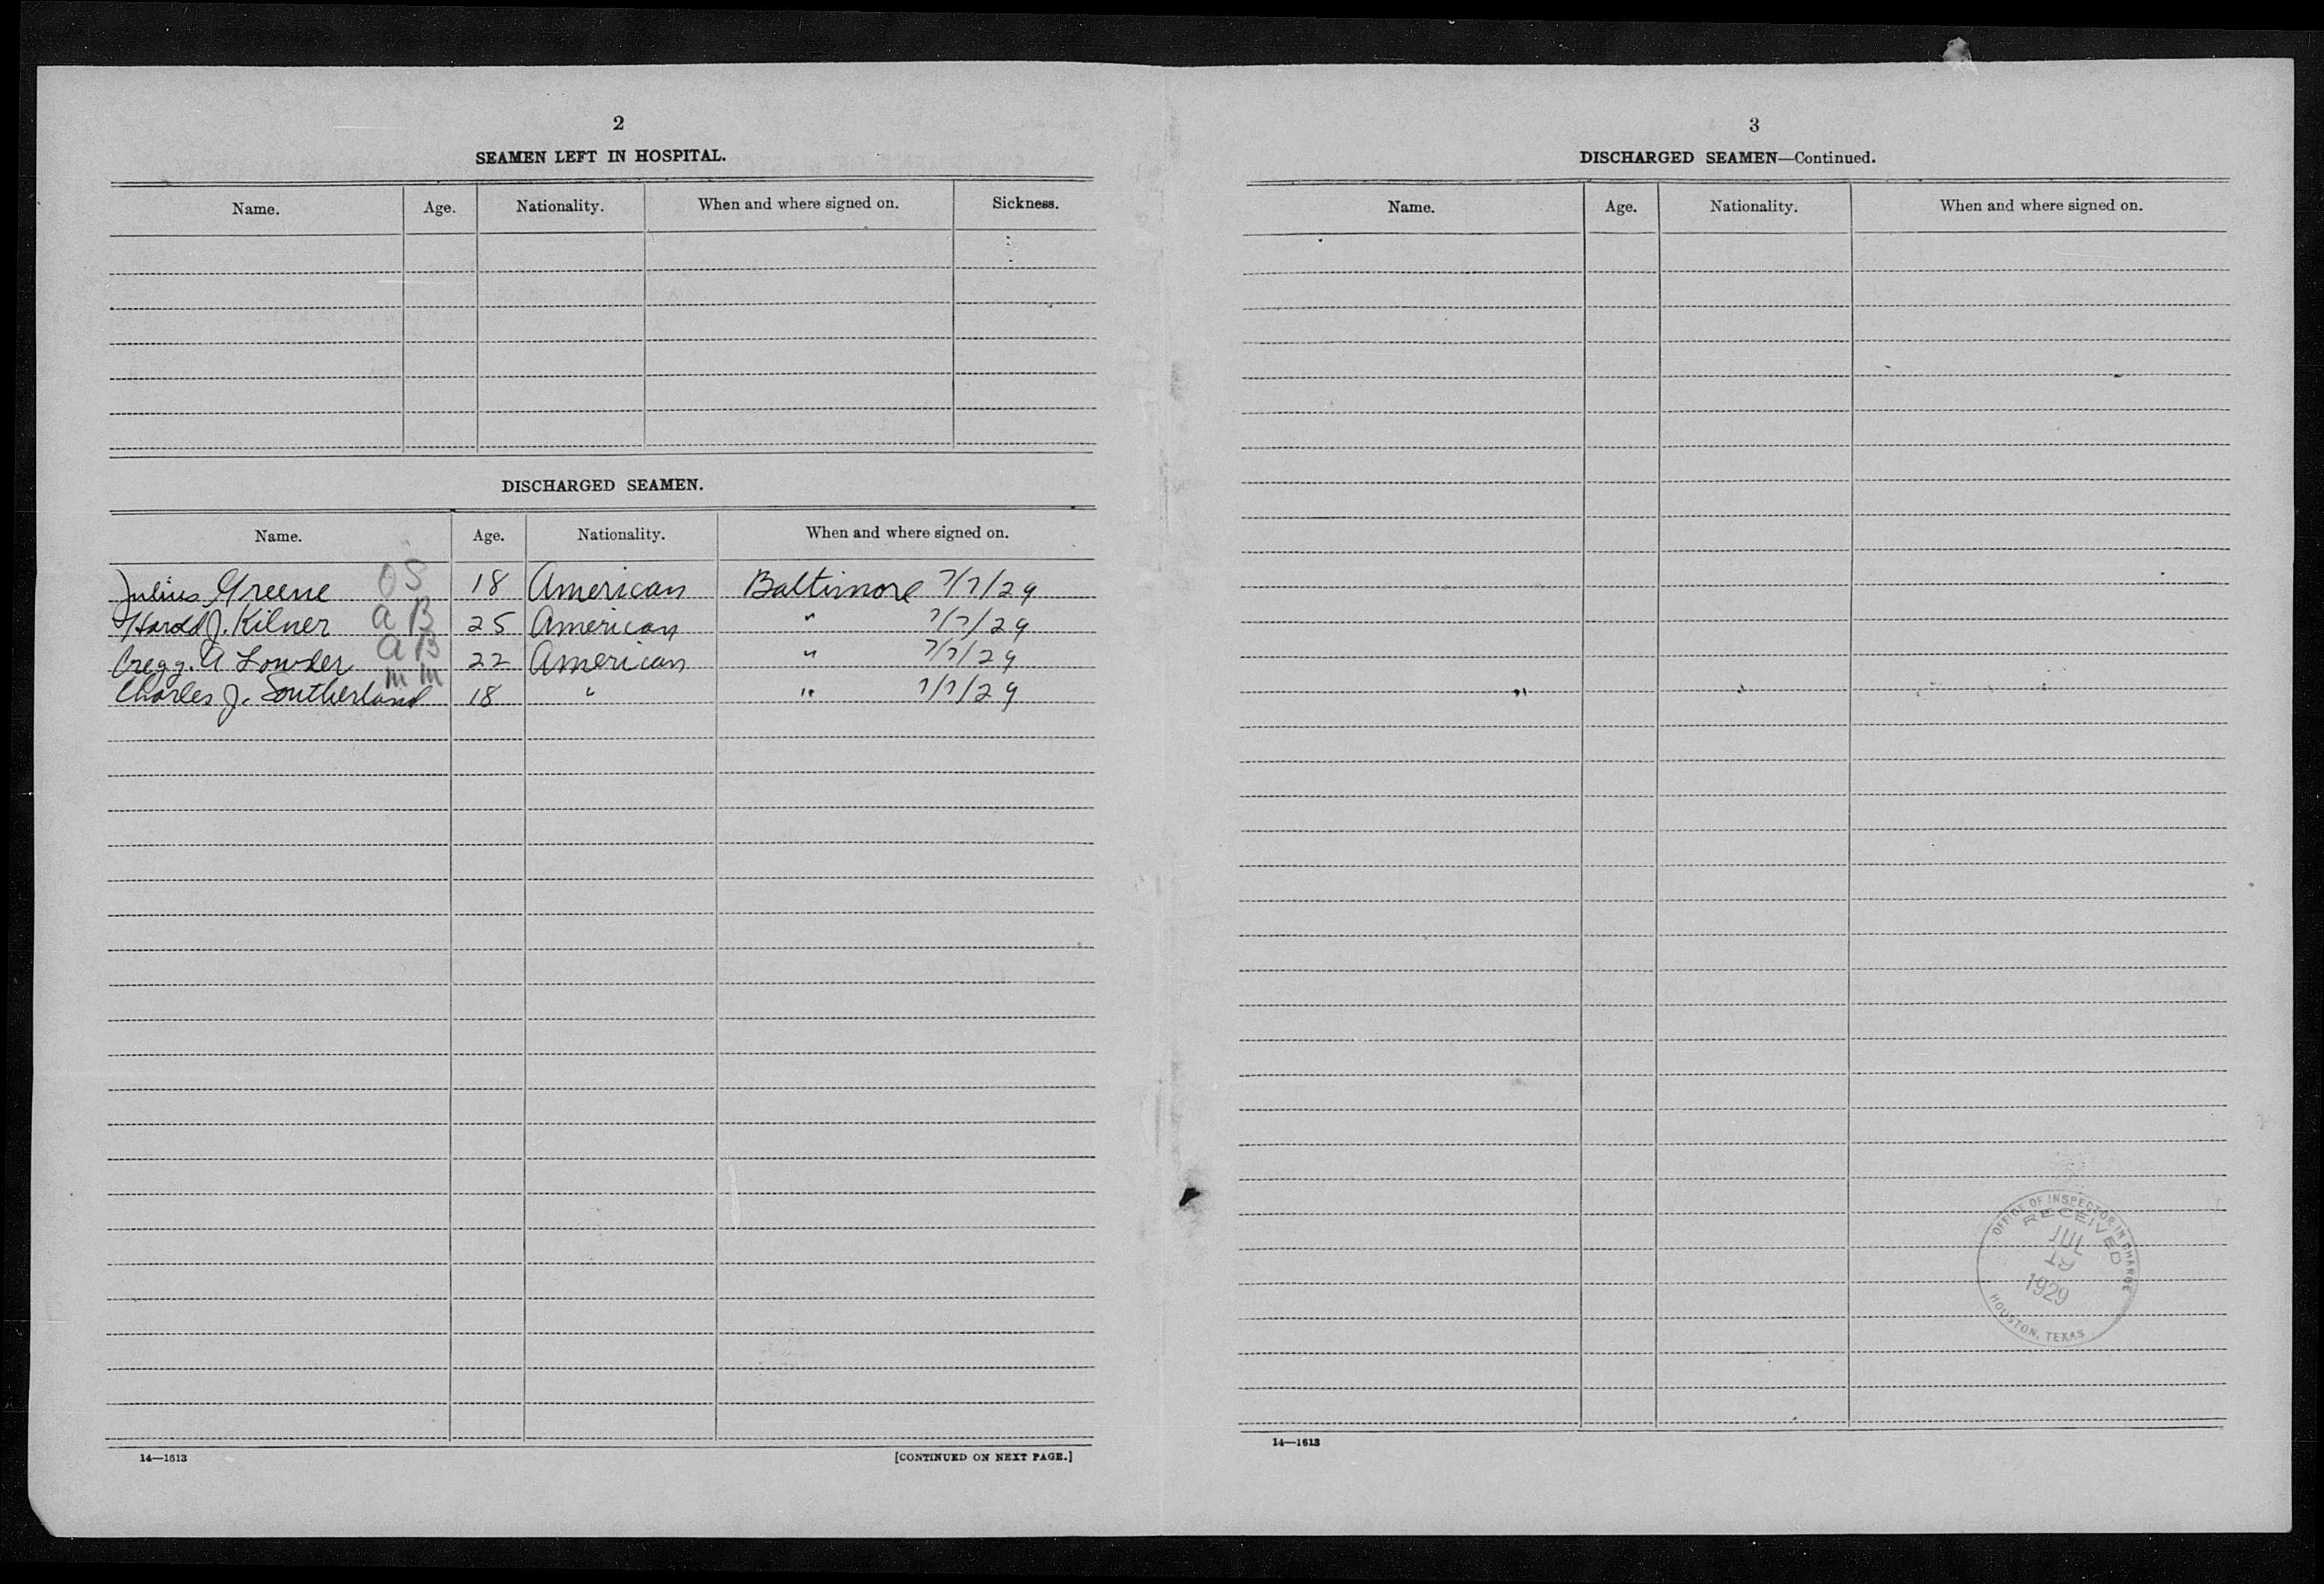 2
SEAMEN LEFT IN HOSPITAL.
Name. Age. Nationality. When and where signed on. Sickness.
DISCHARGED SEAMEN.
Name. Age. Nationality. When and where signed on.
Julius Greene OS 18 American Baltimore 7/7/29
Harold J. Kilner AB 25 American " 7/7/29
Gregg. A Lowder AB 22 American " 7/7/29
Charles J. Southerland mm 18 " " 7/7/29
14—1613 [CONTINUED ON NEXT PAGE.]
3
DISCHARGED SEAMEN—Continued.
Name. Age. Nationality. When and where signed on.
OFFICE OF INSPECTOR IN CHARGE
RECEIVED
JUL
19
1929
HOUSTON, TEXAS
14—1613